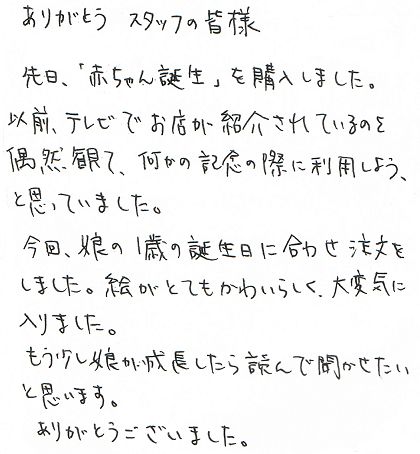 ありがとう スタッフの皆様
先日、「赤ちゃん誕生」を購入しました。
以前、テレビでお店が紹介されているのを
偶然観て、何かの記念の際に利用しよう、
と思っていました。
今回、娘の1歳の誕生日に合わせ注文を
しました。絵がとてもかわいらしく、大変気に
入りました。
もう少し娘が成長したら読んで聞かせたい
と思います。
ありがとうございました。